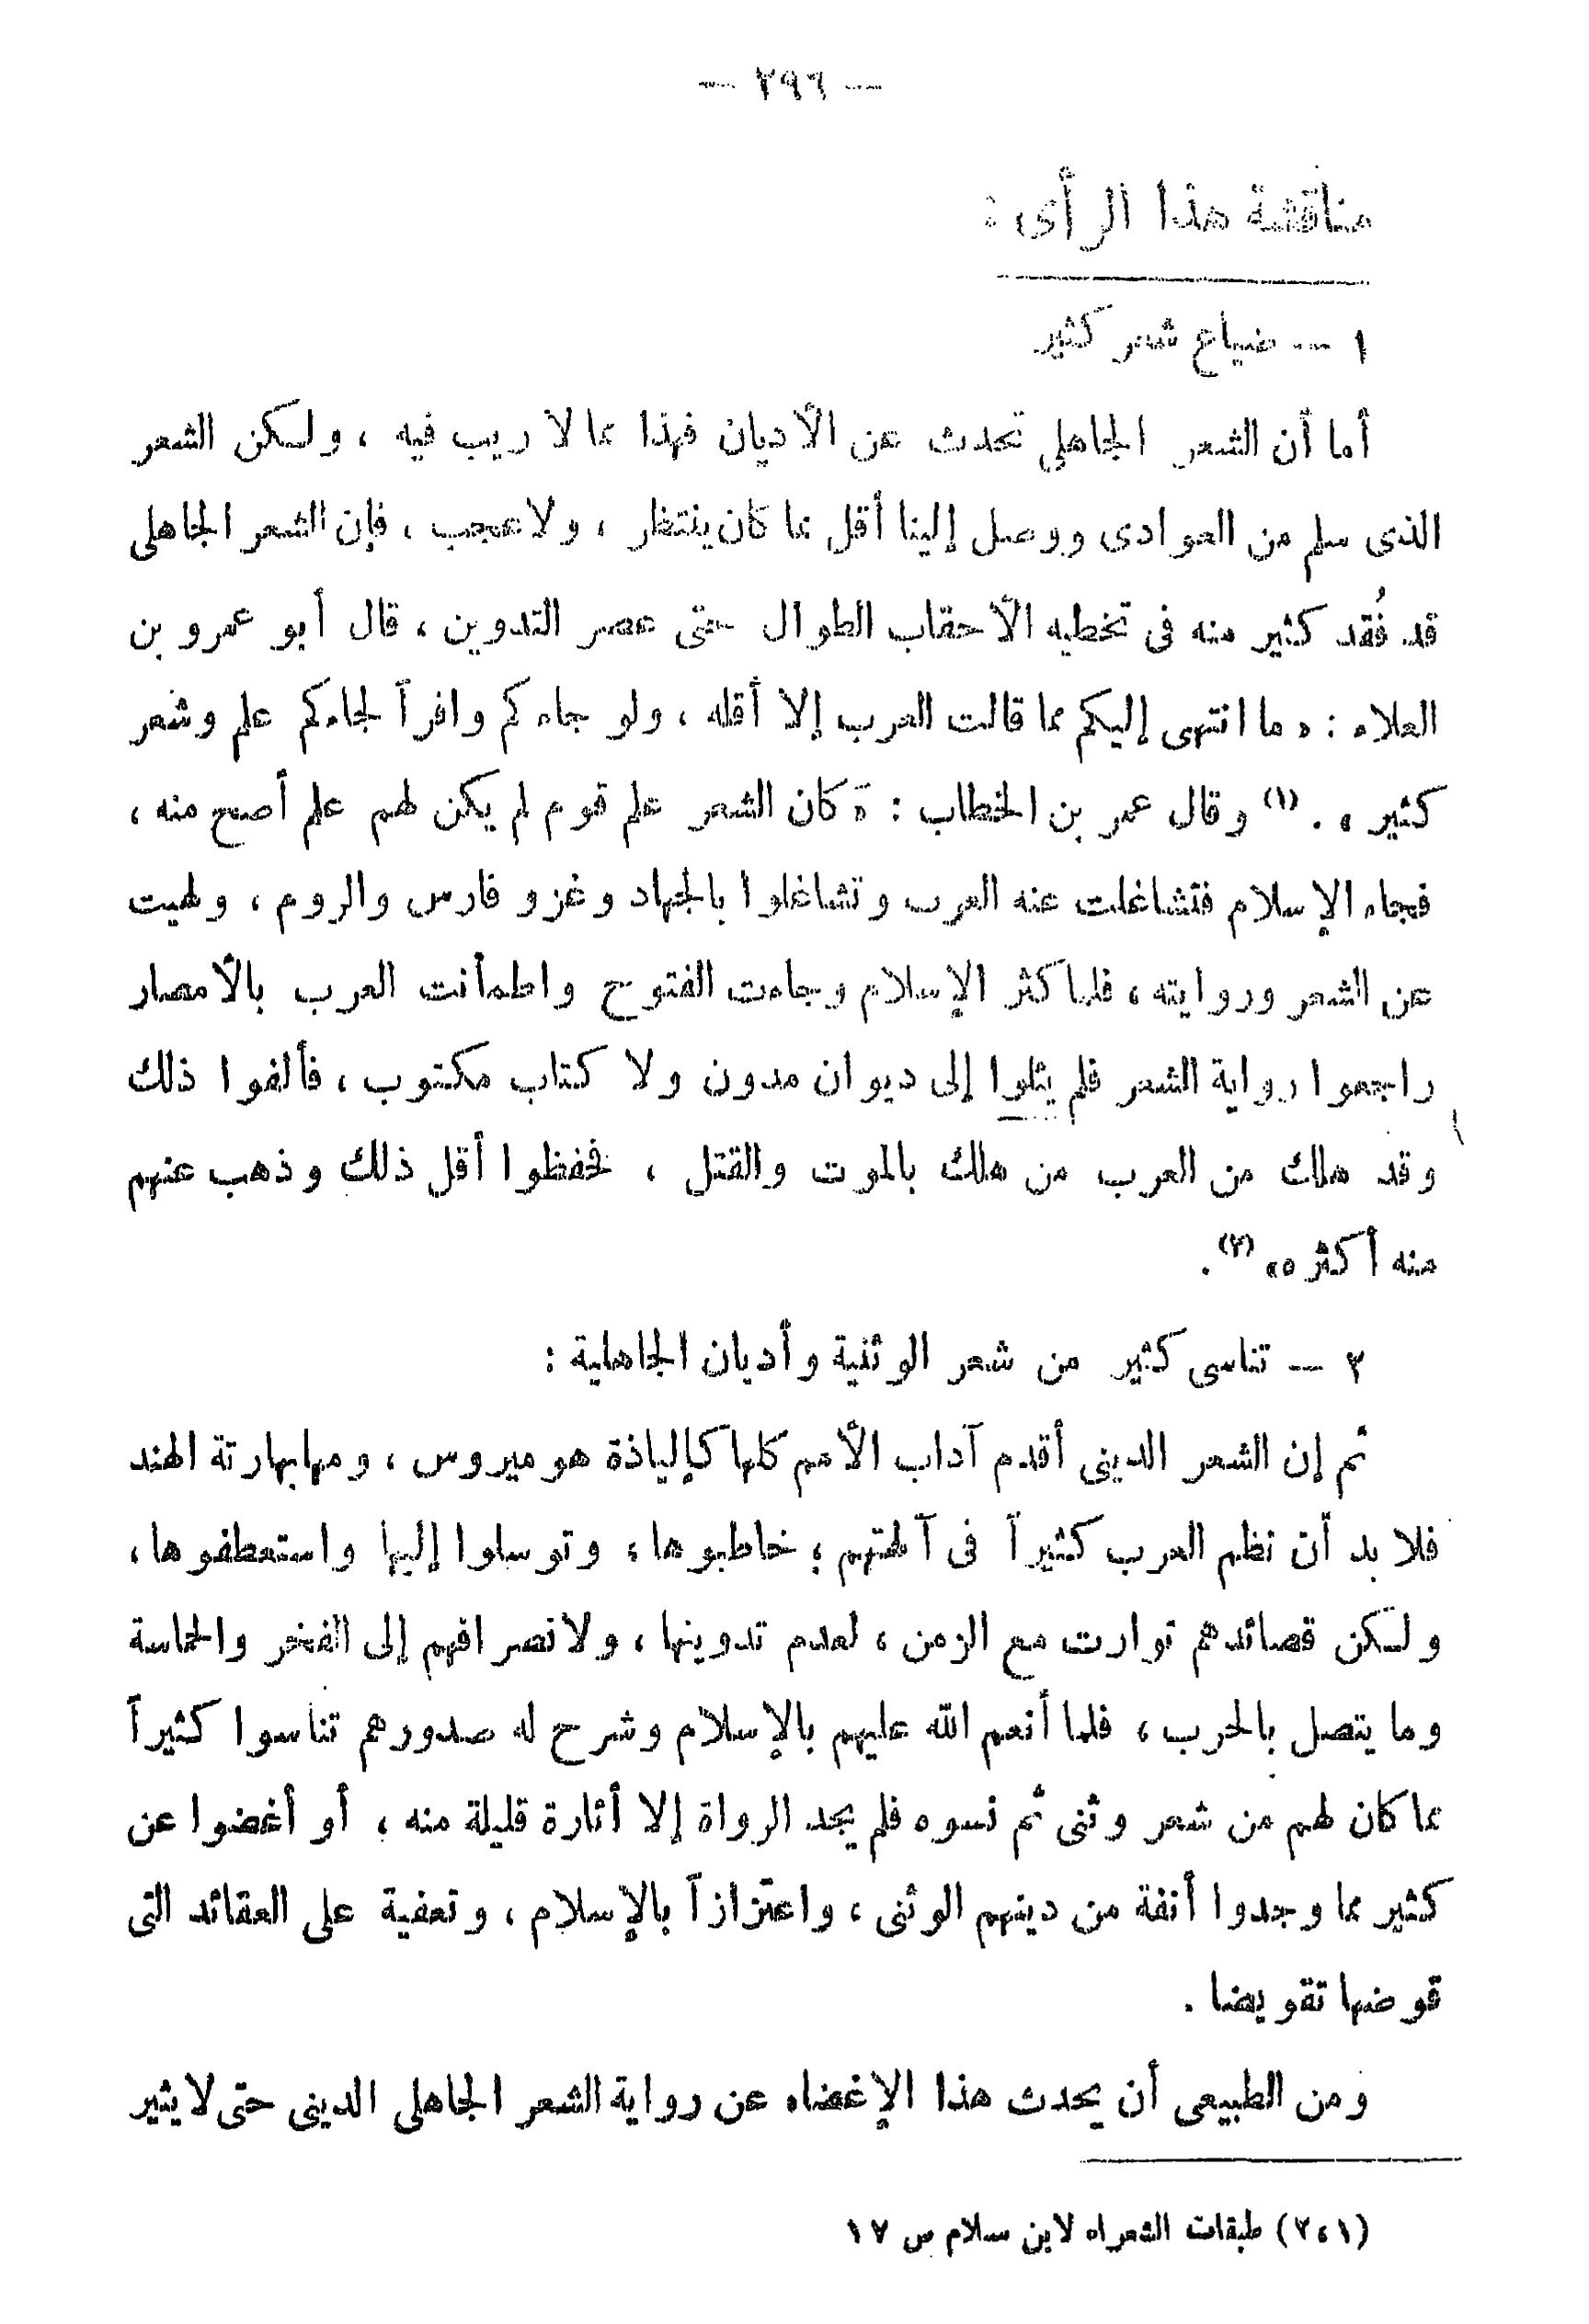 — ٢٩٦ —
مناقشة هذا الرأى :
١ — ضياع شعر كثير
أما أن الشعر الجاهلى تحدث عن الأديان فهذا مما لا ريب فيه ، ولكن الشعر
الذى سلم من العوادى ووصل إلينا أقل مما كان ينتظر ، ولا عجب ، فإن الشعر الجاهلى
قد فُقد كثير منه فى تخطيه الأحقاب الطوال حتى عصر التدوين ، قال أبو عمرو بن
العلاء : « ما انتهى إليكم مما قالت العرب إلا أقله ، ولو جاءكم وافراً لجاءكم علم وشعر
كثير » . (١) وقال عمر بن الخطاب : « كان الشعر علم قوم لم يكن لهم علم أصح منه ،
فجاء الإسلام فتشاغلت عنه العرب وتشاغلوا بالجهاد وغزو فارس والروم ، ولهيت
عن الشعر وروايته ، فلما كثر الإسلام وجاءت الفتوح واطمأنت العرب بالأمصار
راجعوا رواية الشعر فلم يئلوا إلى ديوان مدون ولا كتاب مكتوب ، فألفوا ذلك
وقد هلك من العرب من هلك بالموت والقتل ، فحفظوا أقل ذلك وذهب عنهم
منه أكثره » (٢) .
٢ — تناسى كثير من شعر الوثنية وأديان الجاهلية :
ثم إن الشعر الدينى أقدم آداب الأمم كلها كإلياذة هوميروس ، ومهابهارتة الهند
فلا بد أن نظم العرب كثيراً فى آلهتهم ؛ خاطبوها ، وتوسلوا إليها واستعطفوها ،
ولكن قصائدهم توارت مع الزمن ، لعدم تدوينها ، ولانصرافهم إلى الفخر والحماسة
وما يتصل بالحرب ، فلما أنعم الله عليهم بالإسلام وشرح له صدورهم تناسوا كثيراً
مما كان لهم من شعر وثنى ثم نسوه فلم يجد الرواة إلا أثارة قليلة منه ، أو أغضوا عن
كثير مما وجدوا أنفة من دينهم الوثنى ، واعتزازاً بالإسلام ، وتعفية على العقائد التى
قوضها تقويضا .
ومن الطبيعى أن يحدث هذا الإغضاء عن رواية الشعر الجاهلى الدينى حتى لا يثير
(١،٢) طبقات الشعراء لابن سلام ص ١٧